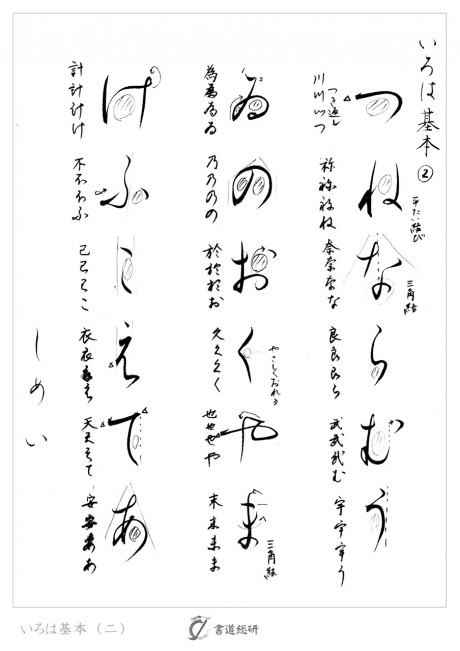 いろは基本②
つねならむう
平たい結び
三角結
つき返し
川川川つ 祢祢祢ね 奈奈奈な 良良良ら 武武武む 宇宇宇う
ゐのおくやま
やさしくおれる
三角結
為為為ゐ 乃乃乃の 於於於お 久久久く 也也也や 末末末ま
けふこえてあ
計計計け 不不不ふ 己己己こ 衣衣衣え 天天天て 安安安あ
しめい
いろは基本（二）
書道総研